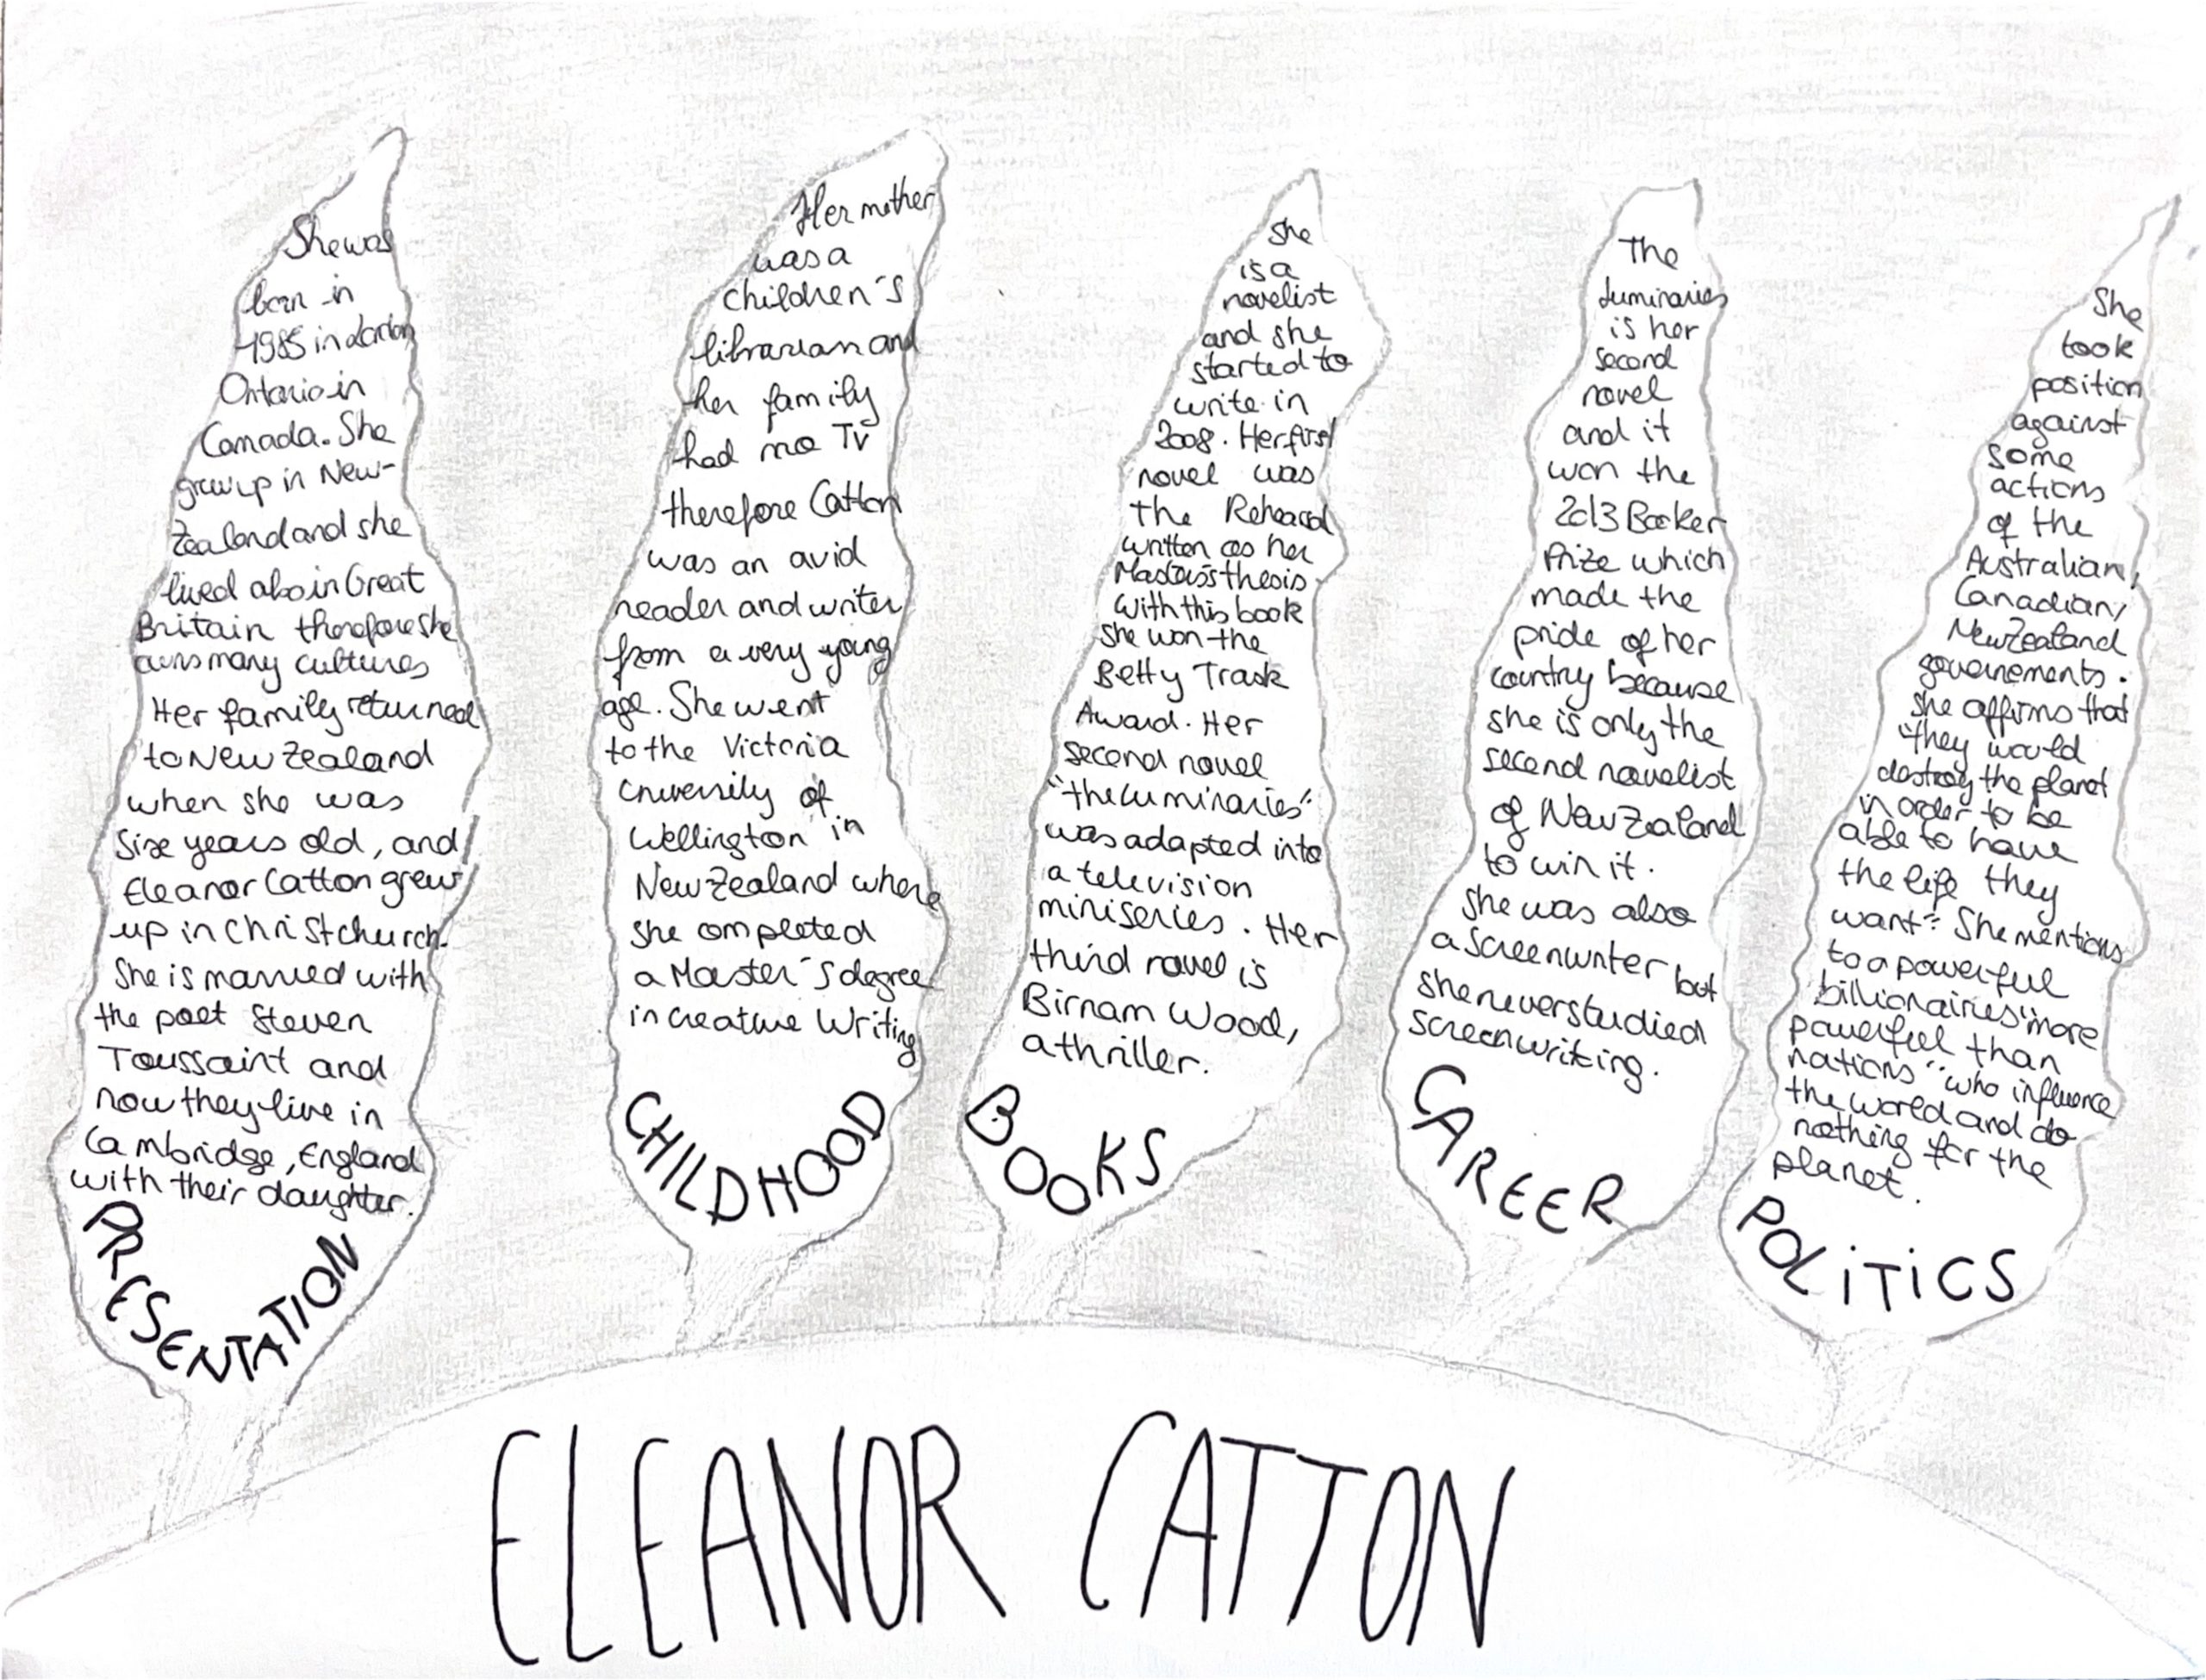 She was
born in
1985 in London
Ontario in
Canada. She
grew up in New-
Zealand and she
lived also in Great
Britain therefore she
owns many cultures
Her family returned
to New Zealand
when she was
six years old, and
Eleanor Catton grew
up in Christchurch.
She is married with
the poet Steven
Toussaint and
now they live in
Cambridge, England
with their daughter.
PRESENTATION
Her mother
was a
children's
librarian and
her family
had no TV
therefore Catton
was an avid
reader and writer
from a very young
age. She went
to the Victoria
University of
Wellington in
New Zealand where
she completed
a Master's degree
in creative Writing
CHILDHOOD
She
is a
novelist
and she
started to
write in
2008. Her first
novel was
The Rehearsal
written as her
Master's thesis.
With this book
she won the
Betty Trask
Award. Her
second novel
"the luminaries"
was adapted into
a television
miniseries. Her
third novel is
Birnam Wood,
a thriller.
BOOKS
The
Luminaries
is her
second
novel
and it
won the
2013 Booker
Prize which
made the
pride of her
country because
she is only the
second novelist
of New Zealand
to win it.
She was also
a screenwriter but
she never studied
screenwriting.
CAREER
She
took
position
against
some
actions
of the
Australian,
Canadian,
New Zealand
governements.
She affirms that
"they would
destroy the planet
in order to be
able to have
the life they
want". She mentions
to a powerful
billionairies "more
powerful than
nations" who influence
the world and do
nothing for the
planet.
POLITICS
ELEANOR CATTON